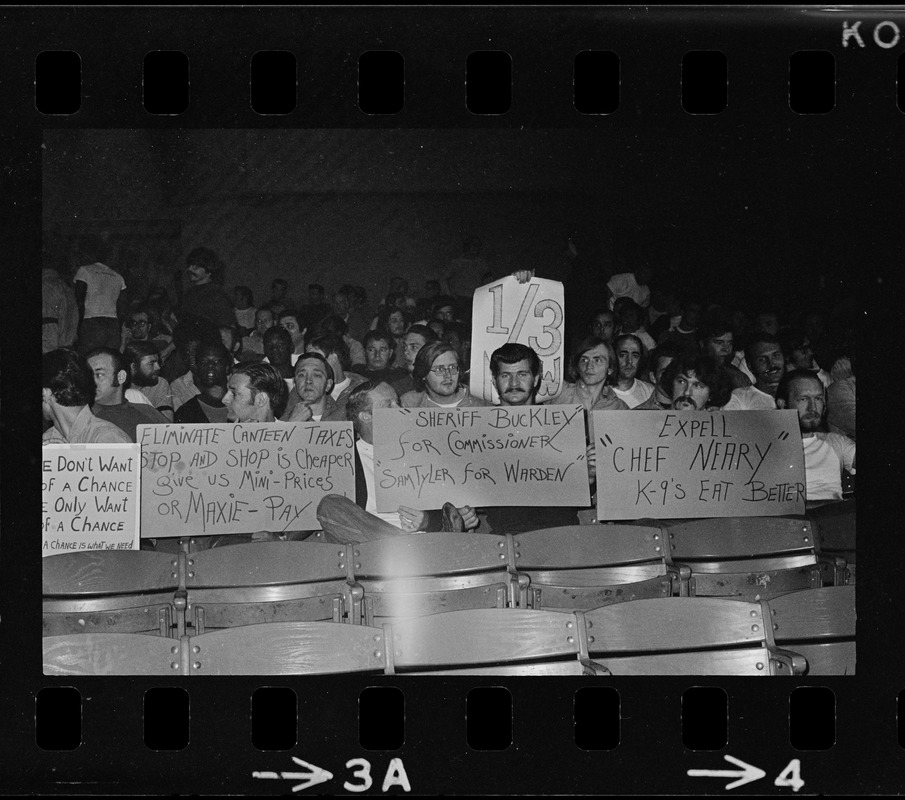 KO
1/3
E DON'T WANT
OF A CHANCE
E ONLY WANT
OF A CHANCE
A CHANCE IS WHAT WE NEED
ELIMINATE CANTEEN TAXES
STOP AND SHOP is CHEAPER
give us MINI-PRICES
OR MAXIE-PAY
"SHERIFF BUCKLEY"
FOR COMMISSIONER
"SAM TYLER FOR WARDEN"
EXPELL
"CHEF NEARY"
K-9's EAT BETTER
→ 3A → 4